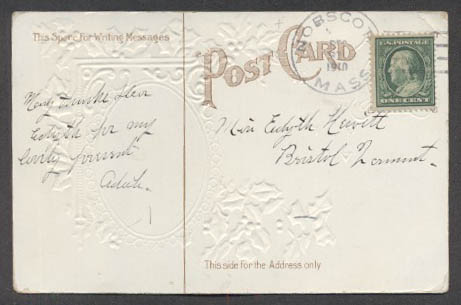 This Space for Writing Messages
POST CARD
NOBSCOT
1910
MASS
U.S. POSTAGE
ONE CENT
Many thanks dear
Edyth for my
lovely present
Adah.
Miss Edyth Hewitt
Bristol Vermont.
This side for the Address only